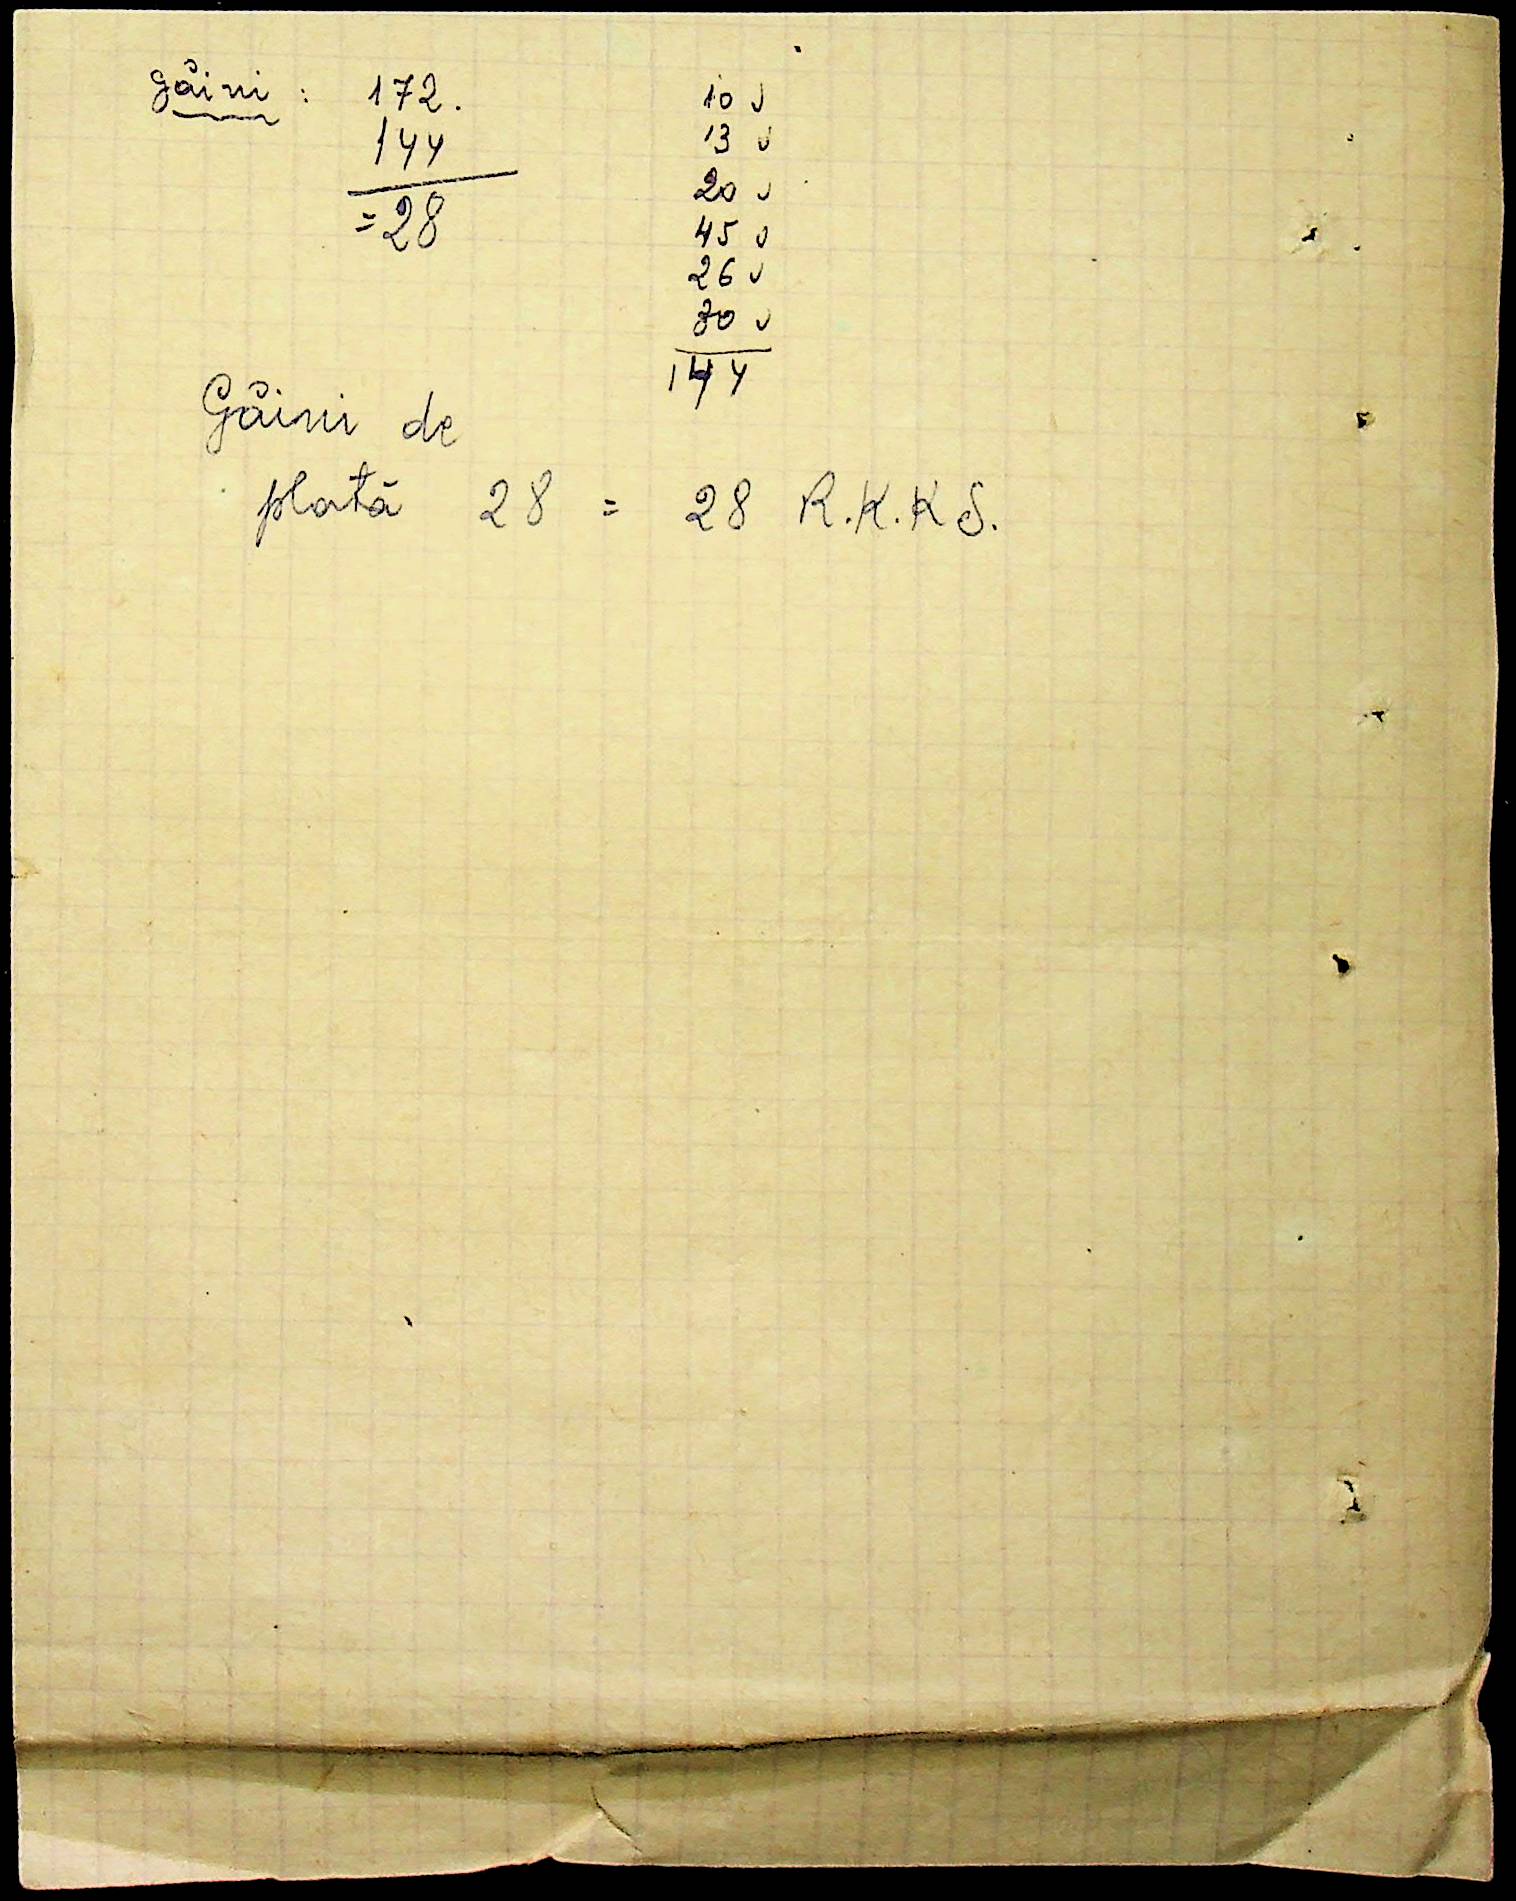 Găini : 172.
144
= 28
10 ✓
13 ✓
20 ✓
45 ✓
26 ✓
30 ✓
144
Găini de
plată 28 = 28 R.K.K S.